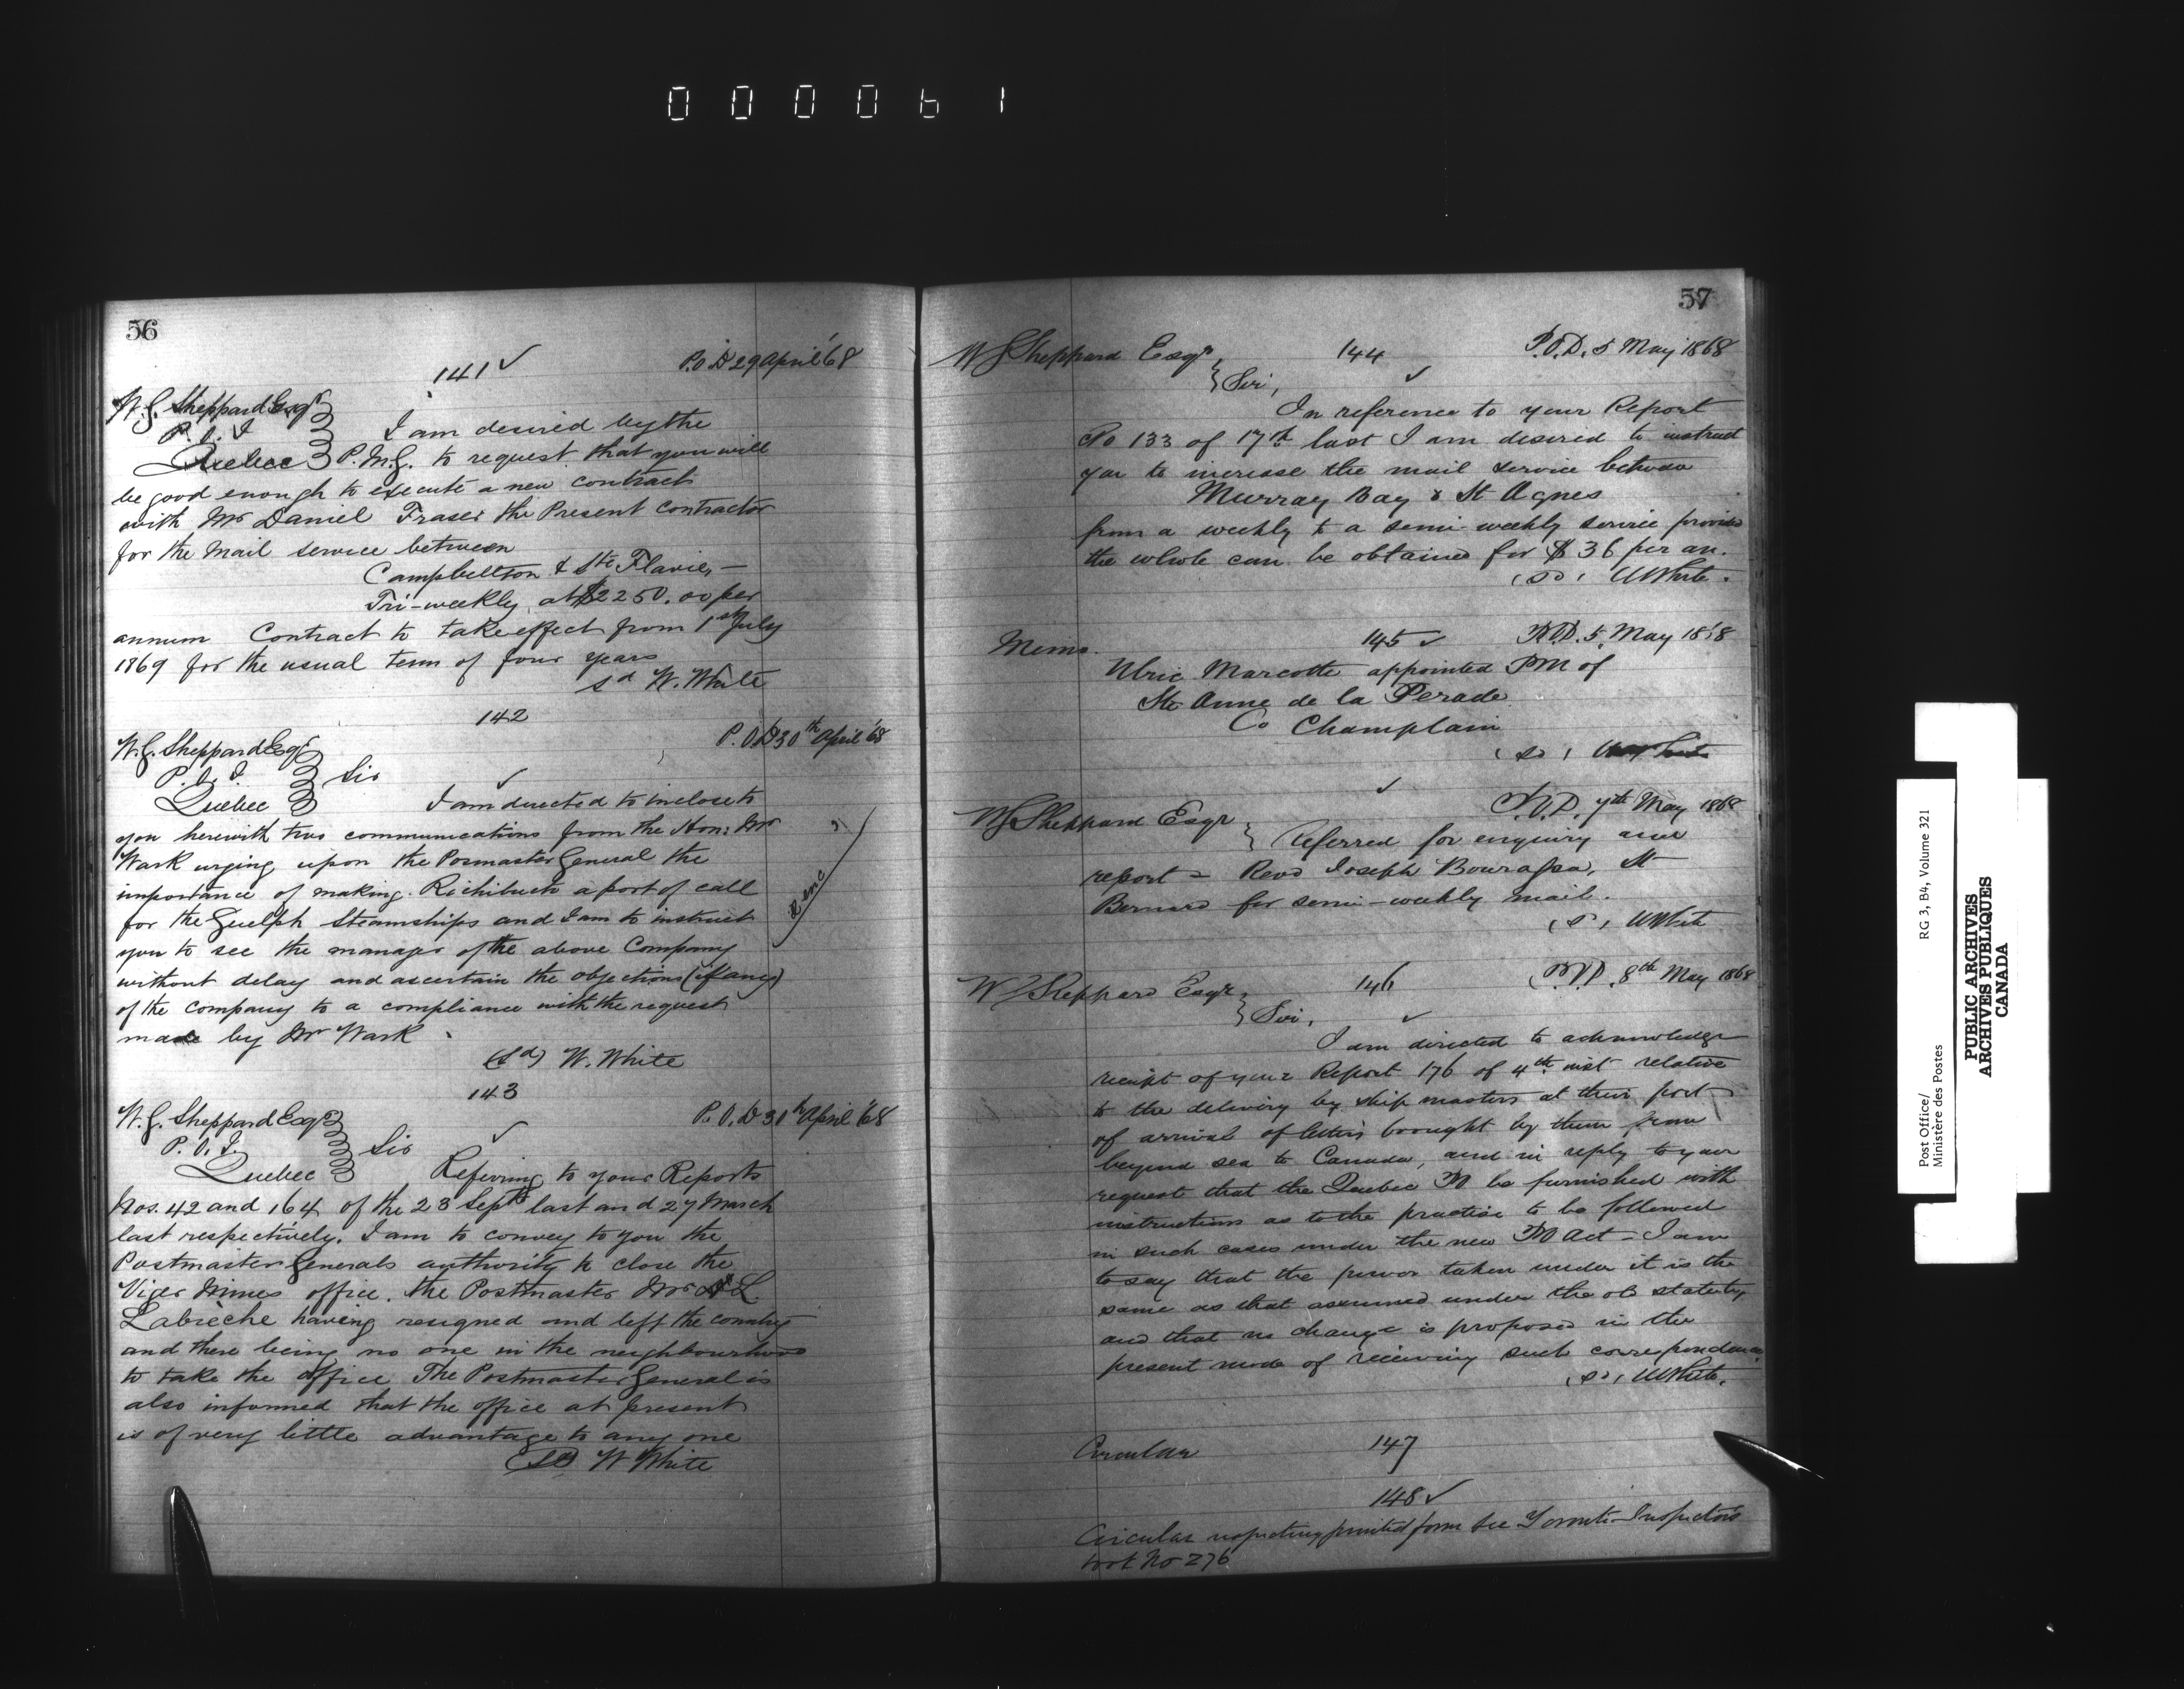 000061
56
141 ✓ P.O.D 29 April '68
W.G. Sheppard Esqr
P.O.I
Quebec
I am desired by the
P.M.G. to request that you will
be good enough to execute a new contract
with Mr Daniel Fraser the Present Contractor
for the Mail service between
Campbellton & Ste Flavie, —
Tri-weekly, at $2250.00 per
annum Contract to take effect from 1st July
1869 for the usual term of four years
sd W. White
142
P.O.D 30th April '68
W.G. Sheppard Esqr
P.O.I.
Quebec
Sir ✓
I am directed to inclose to
you herewith two communications from the Hon: Mr
Wark urging upon the Posmaster General the
importance of making Richibucto a port of call
for the Guelph Steamships and I am to instruct
you to see the manager of the above Company
without delay and ascertain the objections (if any)
of the Company to a compliance with the request
made by Mr Wark
(sd) W. White
143
P.O.D 30th April '68
W.G. Sheppard Esqr
P.O.I.
Quebec
Sir ✓
Refering to your Reports
Nos. 42 and 164 of the 23 Sept last and 27 March
last respectively. I am to convey to you the
Postmaster Generals authority to close the
Viger Mines office. the Postmaster Mr L.
Labrèche having resigned and left the country
and there being no one in the neighbourhood
to take the office The Postmaster General is
also informed that the office at present
is of very little advantage to any one
(sd) W White
57
W G Sheppard Esqr, 144 P.O.D. 5 May 1868
Sir, ✓
In reference to your Report
No 133 of 17th last I am desired to instruct
you to increase the mail service between
Murray Bay & St Agnes
from a weekly to a semi-weekly service provided
the whole can be obtained for $36 per an.
(sd) W White.
Memo. 145 ✓ P.O.D. 5 May 1868
Ulric Marcotte appointed PM of
Ste Anne de la Perade
Co Champlain
(sd) W White
✓
P.O.D. 7th May 1868
W G Sheppard Esqr
Referred for enquiry and
report = Revd Joseph Bourassa, St
Bernard for semi-weekly mail.
(sd) W White
W G Sheppard Esqr, 146 P.O.D. 8th May 1868
Sir, ✓
I am directed to acknowledge
receipt of your Report 176 of 4th inst relative
to the delivery by ship masters at their port
of arrival of letters brought by them from
beyond sea to Canada, and in reply to your
request that the Quebec PO be furnished with
instructions as to the practice to be followed
in such cases under the new PO Act – I am
to say that the power taken under it is the
same as that assumed under the old statute,
and that no change is proposed in the
present mode of receiving such correspondence
(sd) W White.
Circular 147
148 ✓
Circular respecting printed form see Toronto Inspectors
book No 276
Post Office/
Ministère des Postes
RG 3, B4, Volume 321
PUBLIC ARCHIVES
ARCHIVES PUBLIQUES
CANADA